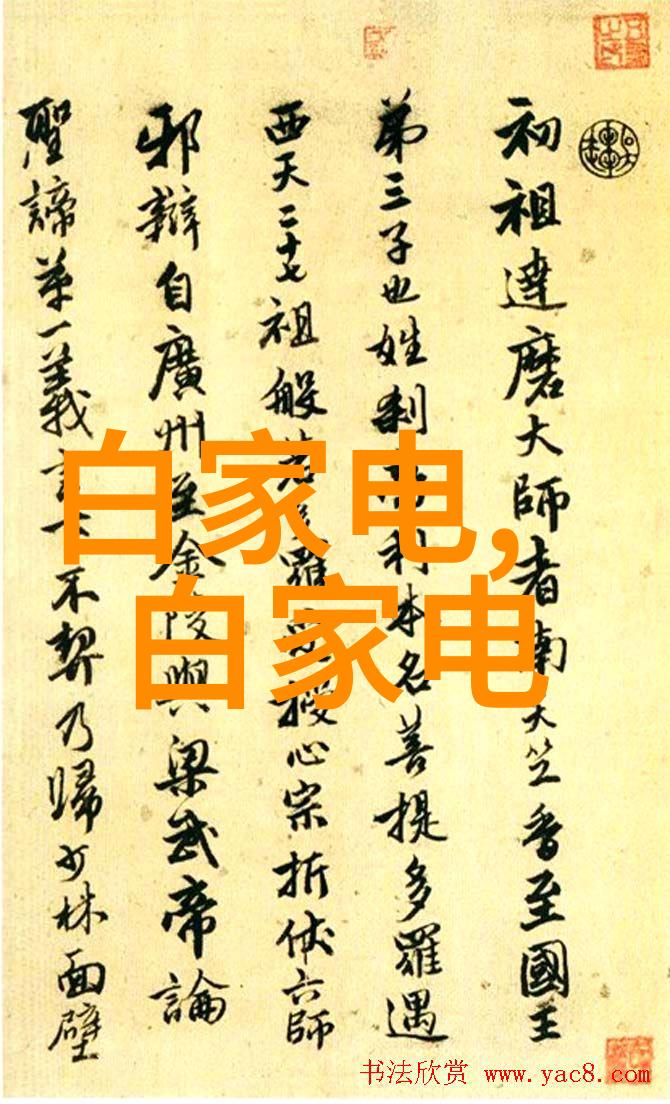 初祖達磨大師者南天竺香至國王
第三子也姓刹利本名菩提多羅遇
西天二十七祖般若多羅授心宗折伏六師
邪辯自廣州至金陵與梁武帝論
聖諦第一義言下不契乃歸少林面壁
白家电,
白家电
书法欣赏 www.yac8.com